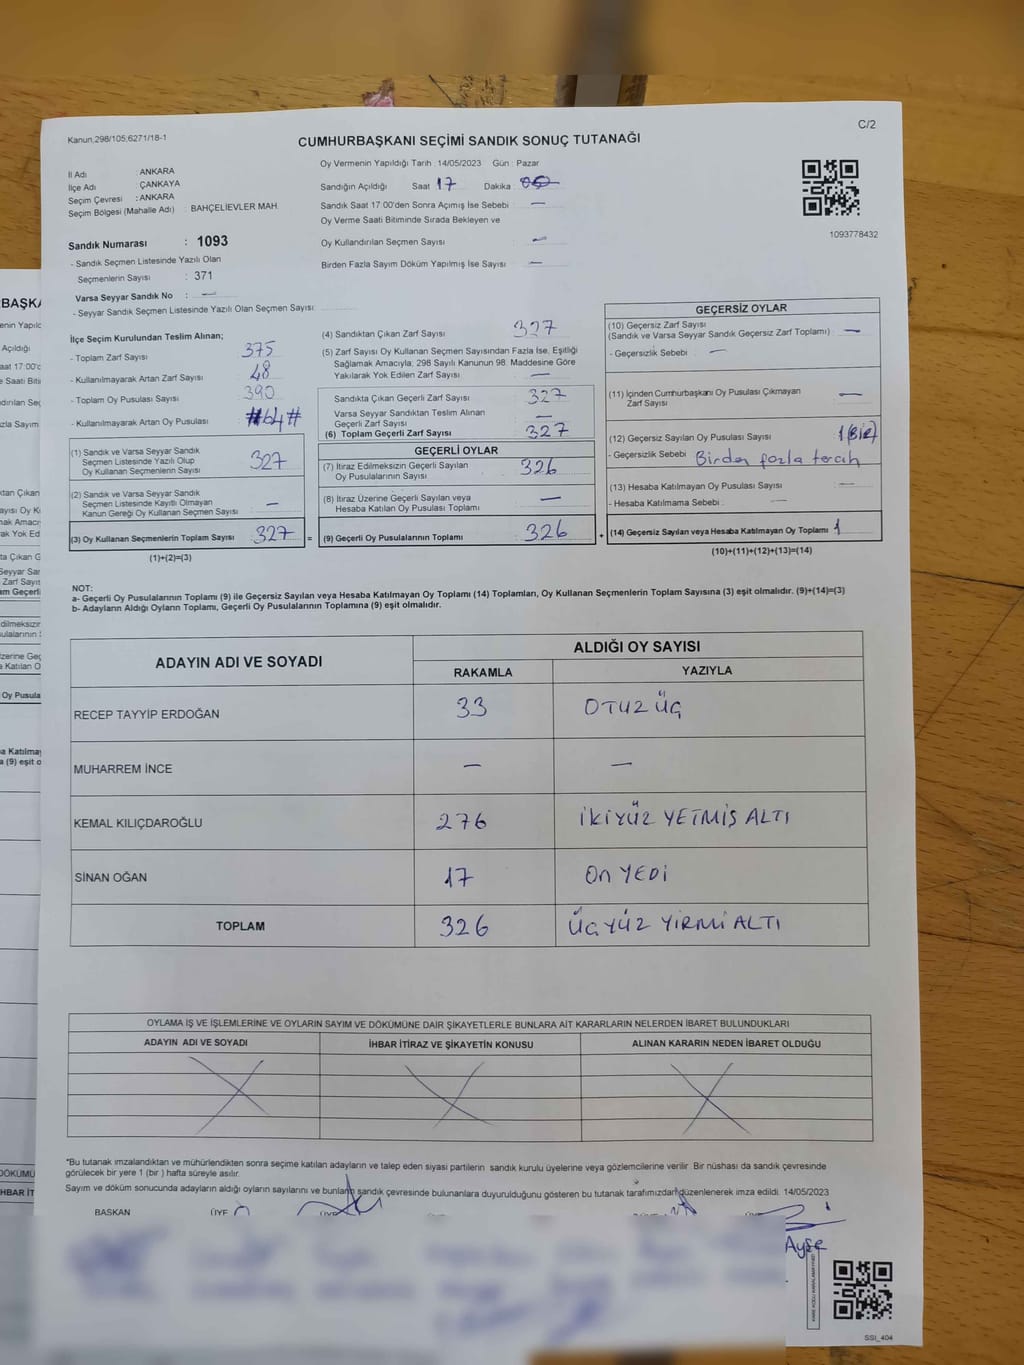 C/2
Kanun,298/105;6271/18-1
CUMHURBAŞKANI SEÇİMİ SANDIK SONUÇ TUTANAĞI
İl Adı : ANKARA
İlçe Adı : ÇANKAYA
Seçim Çevresi : ANKARA
Seçim Bölgesi (Mahalle Adı) : BAHÇELİEVLER MAH.
Oy Vermenin Yapıldığı Tarih : 14/05/2023 Gün : Pazar
Sandığın Açıldığı Saat 17 Dakika :
Sandık Saat 17:00'den Sonra Açımış İse Sebebi : —
Oy Verme Saati Bitiminde Sırada Bekleyen ve
Oy Kullandırılan Seçmen Sayısı : —
Birden Fazla Sayım Döküm Yapılmış İse Sayısı : —
1093778432
Sandık Numarası : 1093
- Sandık Seçmen Listesinde Yazılı Olan
Seçmenlerin Sayısı : 371
Varsa Seyyar Sandık No : —
- Seyyar Sandık Seçmen Listesinde Yazılı Olan Seçmen Sayısı:
İlçe Seçim Kurulundan Teslim Alınan;
- Toplam Zarf Sayısı 375
- Kullanılmayarak Artan Zarf Sayısı 48
- Toplam Oy Pusulası Sayısı 390
- Kullanılmayarak Artan Oy Pusulası #64#
(1) Sandık ve Varsa Seyyar Sandık
Seçmen Listesinde Yazılı Olup
Oy Kullanan Seçmenlerin Sayısı 327
(2) Sandık ve Varsa Seyyar Sandık
Seçmen Listesinde Kayıtlı Olmayan
Kanun Gereği Oy Kullanan Seçmen Sayısı —
(3) Oy Kullanan Seçmenlerin Toplam Sayısı 327 =
(1)+(2)=(3)
(4) Sandıktan Çıkan Zarf Sayısı 327
(5) Zarf Sayısı Oy Kullanan Seçmen Sayısından Fazla İse, Eşitliği
Sağlamak Amacıyla; 298 Sayılı Kanunun 98. Maddesine Göre
Yakılarak Yok Edilen Zarf Sayısı —
Sandıkta Çıkan Geçerli Zarf Sayısı 327
Varsa Seyyar Sandıktan Teslim Alınan
Geçerli Zarf Sayısı —
(6) Toplam Geçerli Zarf Sayısı 327
GEÇERLİ OYLAR
(7) İtiraz Edilmeksizin Geçerli Sayılan
Oy Pusulalarının Sayısı 326
(8) İtiraz Üzerine Geçerli Sayılan veya
Hesaba Katılan Oy Pusulası Toplamı —
(9) Geçerli Oy Pusulalarının Toplamı 326 +
GEÇERSİZ OYLAR
(10) Geçersiz Zarf Sayısı
(Sandık ve Varsa Seyyar Sandık Geçersiz Zarf Toplamı) —
- Geçersizlik Sebebi : —
(11) İçinden Cumhurbaşkanı Oy Pusulası Çıkmayan
Zarf Sayısı —
(12) Geçersiz Sayılan Oy Pusulası Sayısı 1(Bir)
- Geçersizlik Sebebi : Birden fazla tercih
(13) Hesaba Katılmayan Oy Pusulası Sayısı —
- Hesaba Katılmama Sebebi : —
(14) Geçersiz Sayılan veya Hesaba Katılmayan Oy Toplamı 1
(10)+(11)+(12)+(13)=(14)
NOT:
a- Geçerli Oy Pusulalarının Toplamı (9) ile Geçersiz Sayılan veya Hesaba Katılmayan Oy Toplamı (14) Toplamları, Oy Kullanan Seçmenlerin Toplam Sayısına (3) eşit olmalıdır. (9)+(14)=(3)
b- Adayların Aldığı Oyların Toplamı, Geçerli Oy Pusulalarının Toplamına (9) eşit olmalıdır.
ADAYIN ADI VE SOYADI
ALDIĞI OY SAYISI
RAKAMLA YAZIYLA
RECEP TAYYİP ERDOĞAN 33 OTUZ ÜÇ
MUHARREM İNCE — —
KEMAL KILIÇDAROĞLU 276 İKİYÜZ YETMİŞ ALTI
SİNAN OĞAN 17 On YEDİ
TOPLAM 326 ÜÇYÜZ YİRMİ ALTI
OYLAMA İŞ VE İŞLEMLERİNE VE OYLARIN SAYIM VE DÖKÜMÜNE DAİR ŞİKAYETLERLE BUNLARA AİT KARARLARIN NELERDEN İBARET BULUNDUKLARI
ADAYIN ADI VE SOYADI İHBAR İTİRAZ VE ŞİKAYETİN KONUSU ALINAN KARARIN NEDEN İBARET OLDUĞU
*Bu tutanak imzalandıktan ve mühürlendikten sonra seçime katılan adayların ve talep eden siyasi partilerin sandık kurulu üyelerine veya gözlemcilerine verilir. Bir nüshası da sandık çevresinde
görülecek bir yere 1 (bir) hafta süreyle asılır.
Sayım ve döküm sonucunda adayların aldığı oyların sayılarını ve bunların sandık çevresinde bulunanlara duyurulduğunu gösteren bu tutanak tarafımızdan düzenlenerek imza edildi. 14/05/2023
BAŞKAN ÜYE
Ayşe
SSI_404